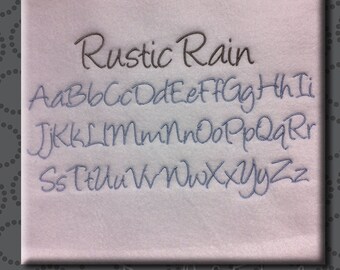 Rustic Rain
AaBbCcDdEeFfGgHhIi
JjKkLlMmNnOoPpQqRr
SsTtUuVvWwXxYyZz